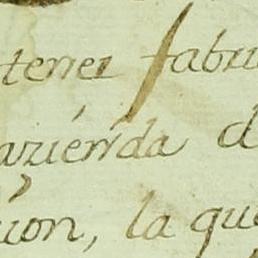 tener fabri
azienda d
ion, la que